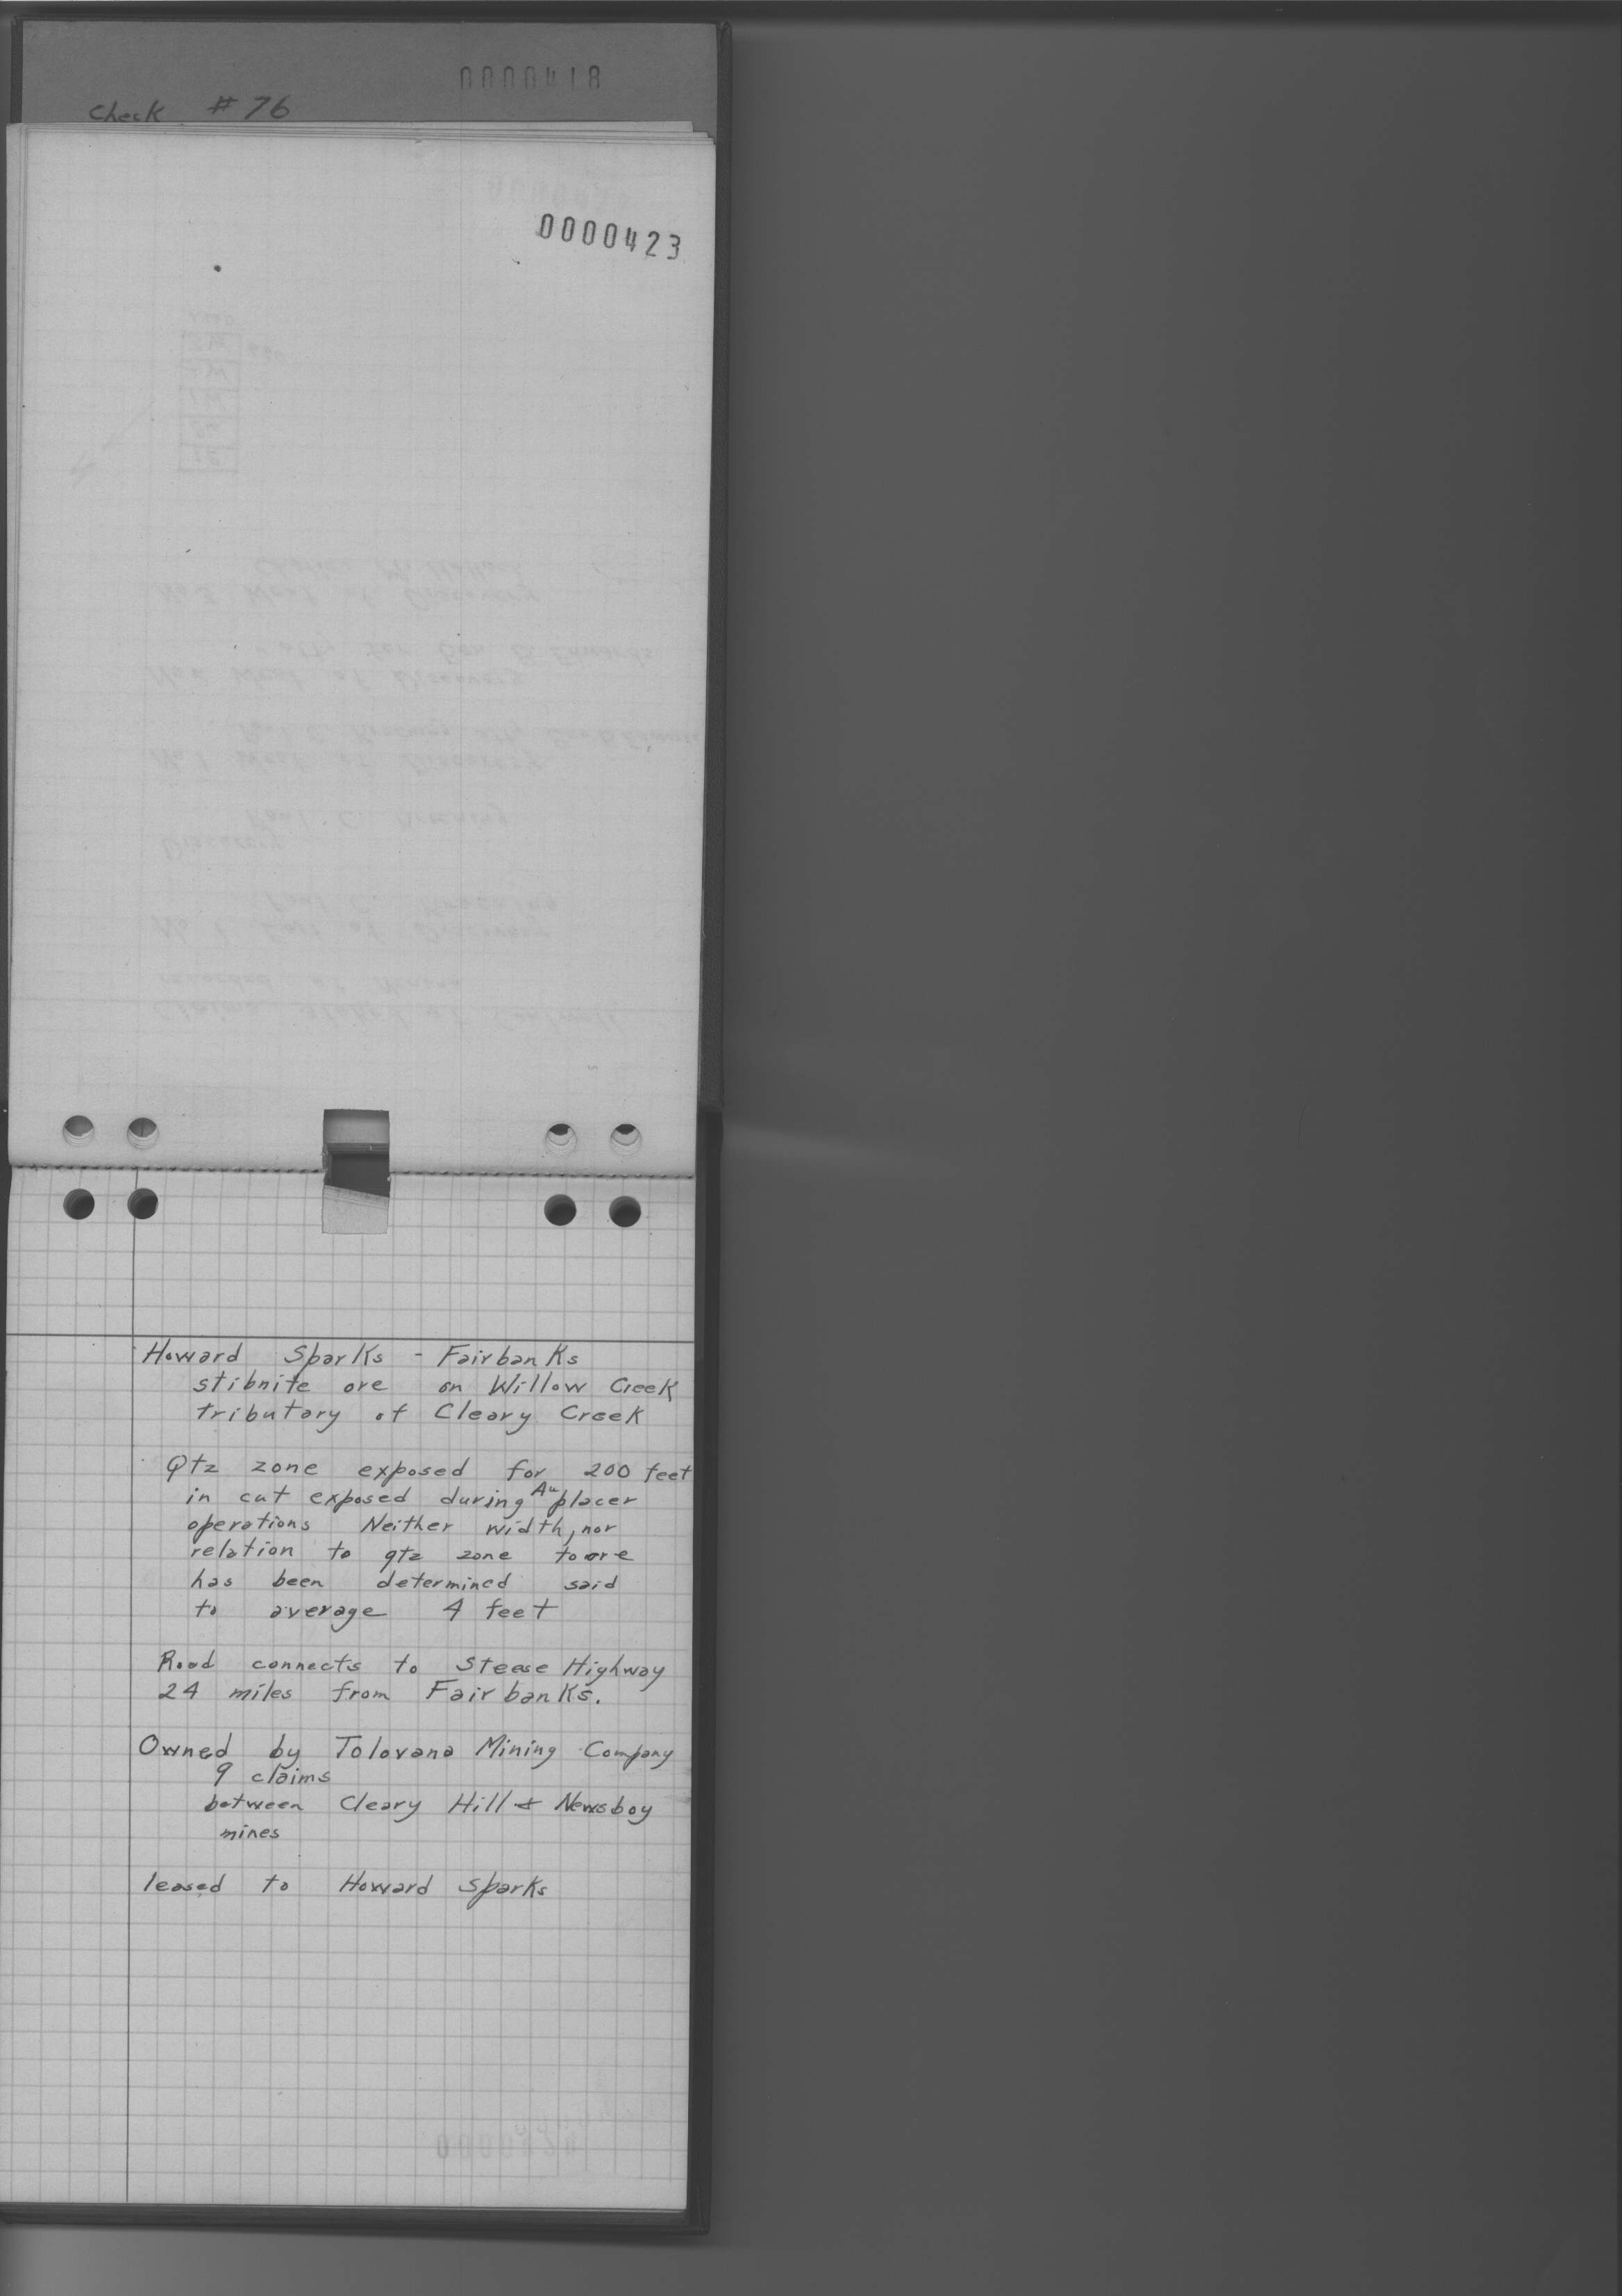 0000418
Check #76
0000423
Howard Sparks - Fairbanks
stibnite ore on Willow Creek
tributary of Cleary Creek
Qtz zone exposed for 200 feet
in cut exposed during Au placer
operations Neither width, nor
relation to qtz zone to ore
has been determined said
to average 4 feet
Road connects to Steese Highway
24 miles from Fairbanks.
Owned by Tolovana Mining Company
9 claims
between Cleary Hill & Newsboy
mines
leased to Howard Sparks